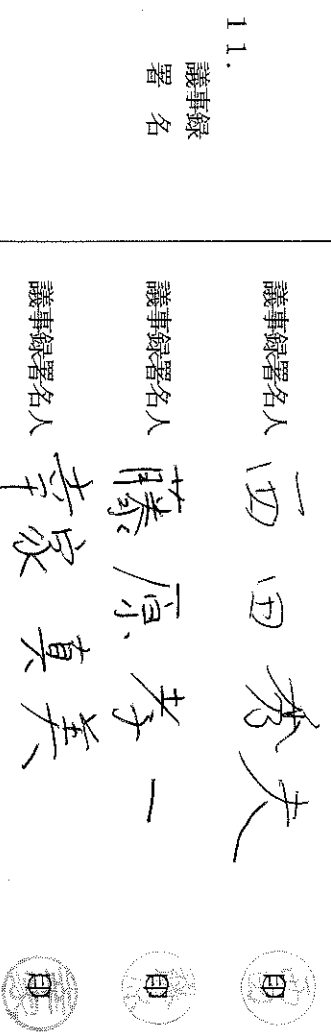 11.
議事録
署名
議事録署名人 西田秀夫 ㊞
議事録署名人 藤原孝一 ㊞
議事録署名人 真美 ㊞